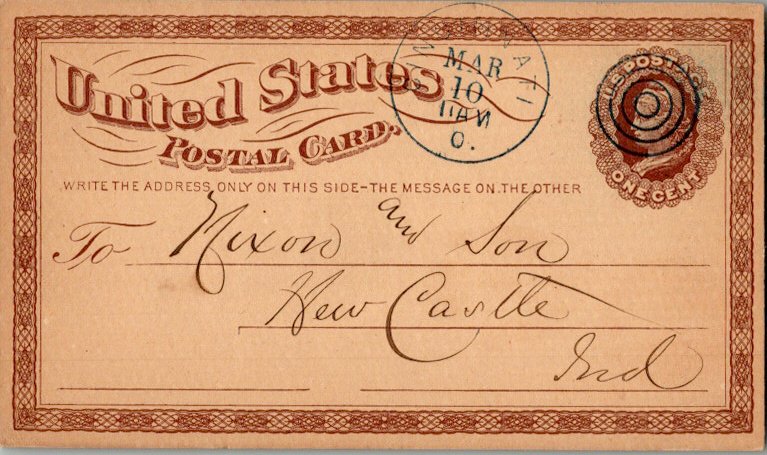 United States
POSTAL CARD.
WRITE THE ADDRESS ONLY ON THIS SIDE-THE MESSAGE ON THE OTHER
CINCINNATI
MAR
10
11AM
O.
U.S. POSTAGE
ONE CENT
To Nixon and Son
New Castle
Ind